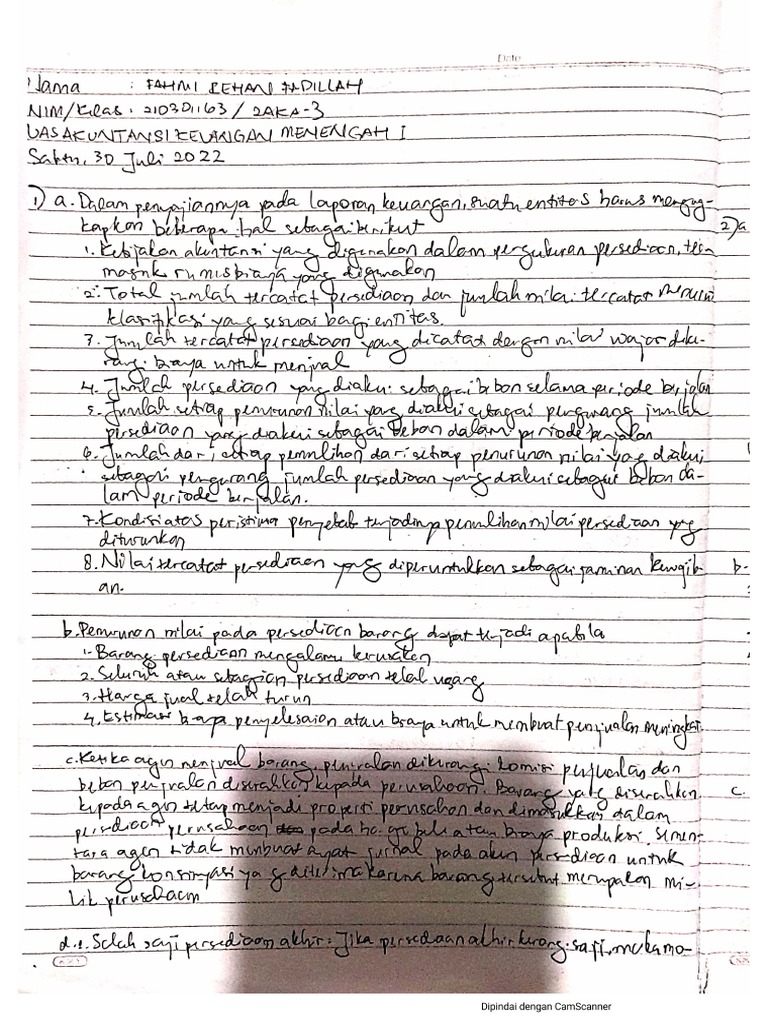 Date
Nama : FAHMI REHAN FADILLAH
NIM/Kelas : 210301163 / 2AKA-3
UAS AKUNTANSI KEUANGAN MENENGAH I
Sabtu, 30 Juli 2022
1) a. Dalam penyajiannya pada laporan keuangan, suatu entitas harus mengung-
kapkan beberapa hal sebagai berikut
2) a
1. Kebijakan akuntansi yang digunakan dalam pengukuran persediaan, ter-
masuk rumus biaya yang digunakan
2. Total jumlah tercatat persediaan dan jumlah nilai tercatat menurut
klasifikasi yang sesuai bagi entitas.
3. Jumlah tercatat persediaan yang dicatat dengan nilai wajar diku-
rangi biaya untuk menjual
4. Jumlah persediaan yang diakui sebagai beban selama periode berjalan
5. Jumlah setiap penurunan nilai yang diakui sebagai pengurang jumlah
persediaan yang diakui sebagai beban dalam periode berjalan
6. Jumlah dari setiap pemulihan dari setiap penurunan nilai yang diakui
sebagai pengurang jumlah persediaan yang diakui sebagai beban da-
lam periode berjalan.
7. Kondisi atas peristiwa penyebab terjadinya pemulihan nilai persediaan yg
diturunkan
8. Nilai tercatat persediaan yang diperuntukkan sebagai jaminan kewajib-
an.
b.
b. Penurunan nilai pada persediaan barang dapat terjadi apabila
1. Barang persediaan mengalami kerusakan
2. Seluruh atau sebagian persediaan telah usang
3. Harga jual telah turun
4. Estimasi biaya penyelesaian atau biaya untuk membuat penjualan meningkat.
c. Ketika agen menjual barang, penjualan dikurangi komisi penjualan dan
beban penjualan diserahkan kepada perusahaan. Barang yang diserahkan
c.
kepada agen tetap menjadi properti perusahaan dan dimasukkan dalam
persediaan perusahaan pada harga beli atau biaya produksi. Semen-
tara agen tidak membuat ayat jurnal pada akun persediaan untuk
barang konsinyasi yg diterima karena barang tersebut merupakan mi-
lik perusahaan
d. 1. Salah saji persediaan akhir : Jika persediaan akhir kurang saji, maka mo-
Dipindai dengan CamScanner